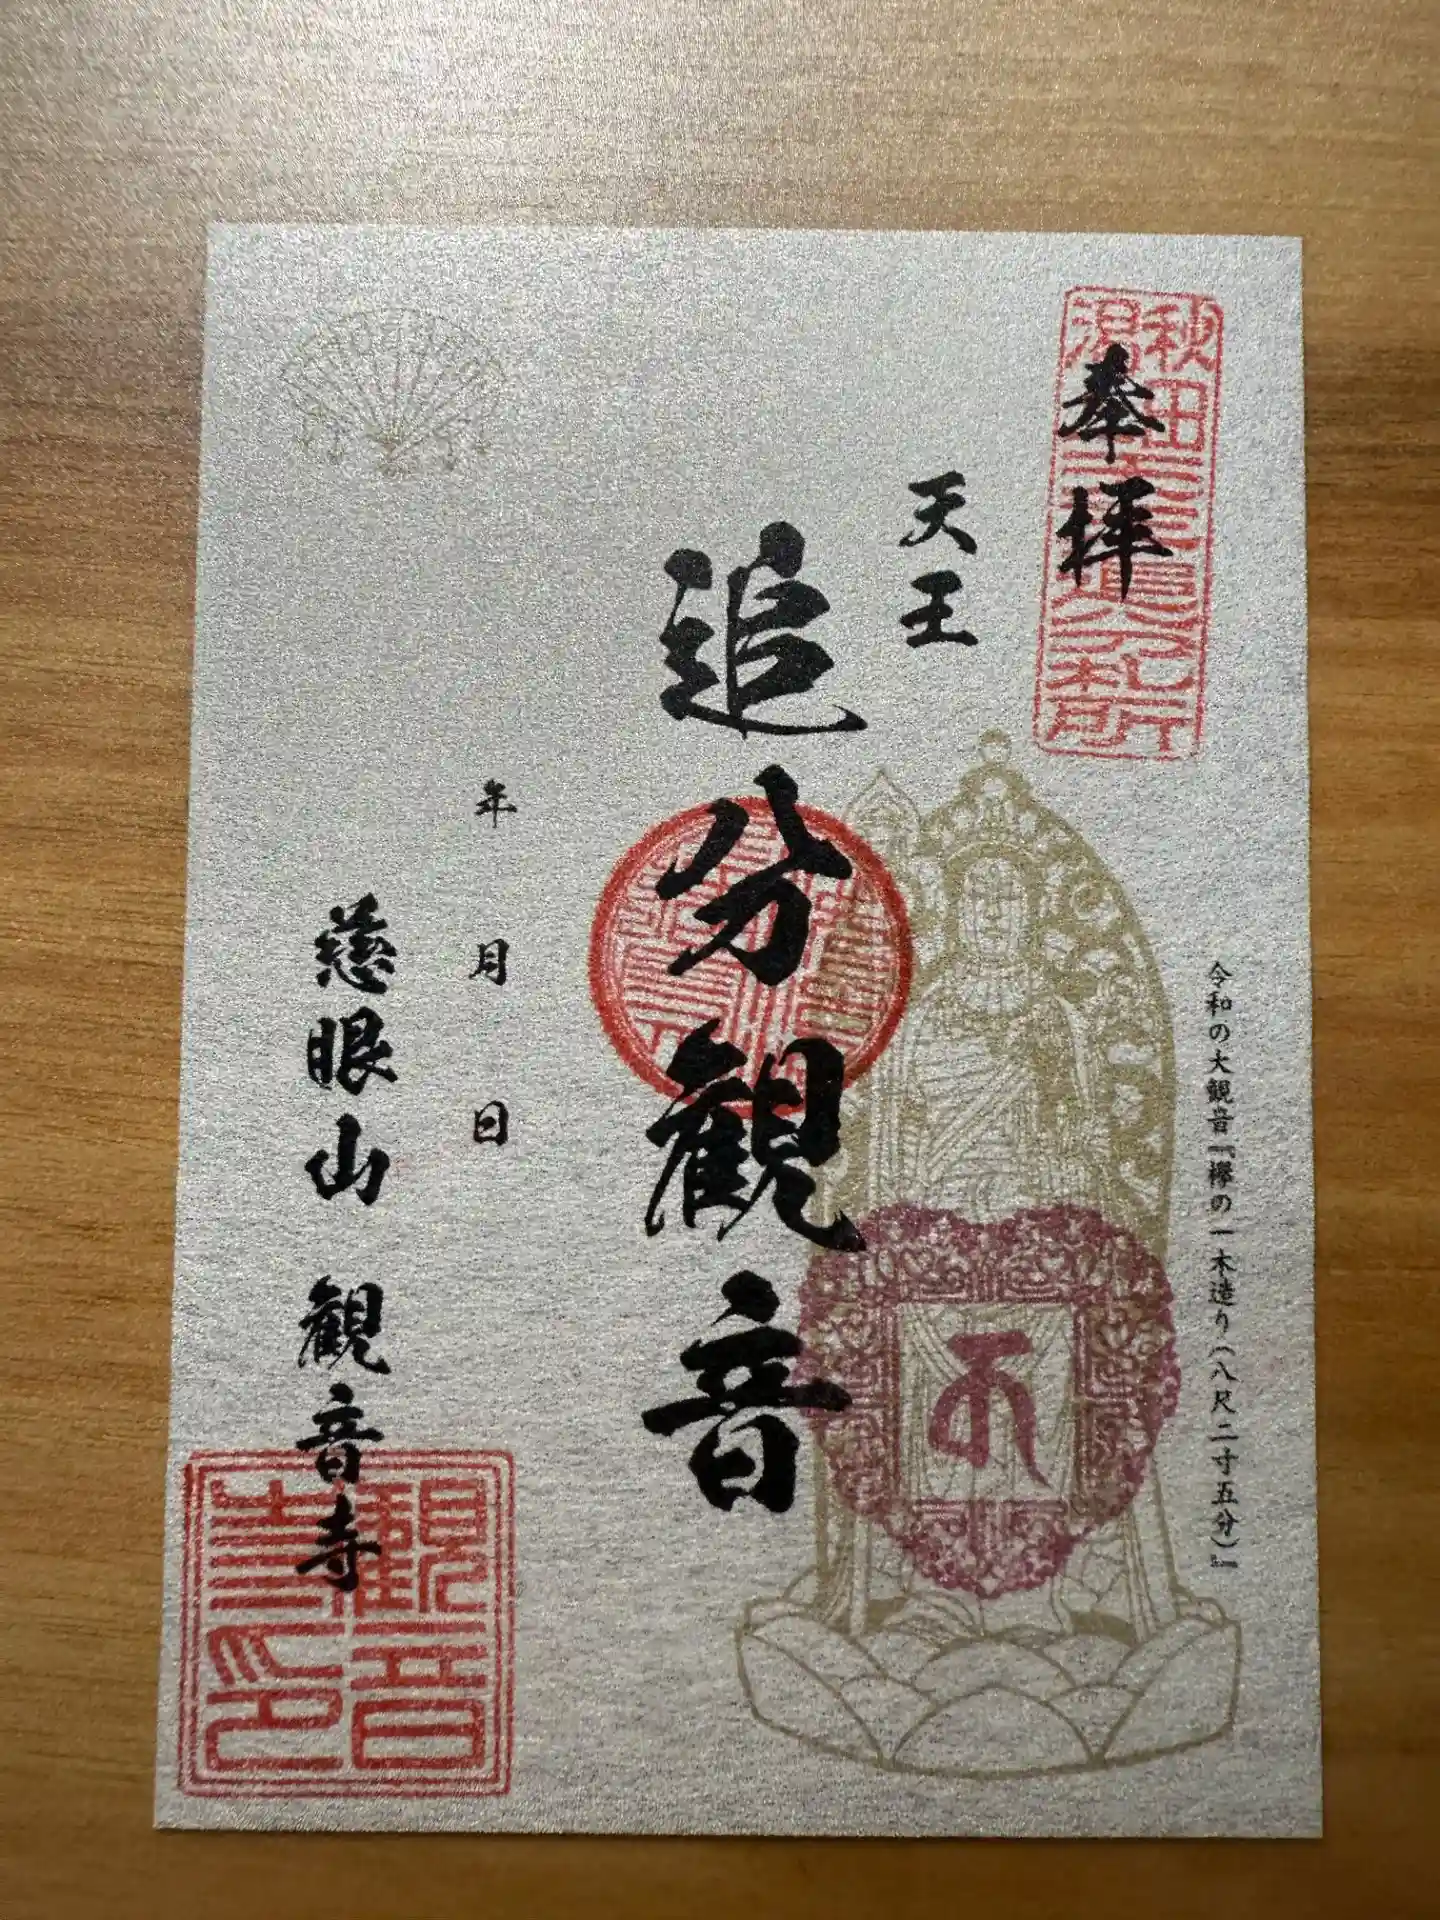 奉拝
天王
追分観音
令和の大観音『欅の一木造り(八尺二寸五分)』
年 月 日
慈眼山 観音寺
観音寺印